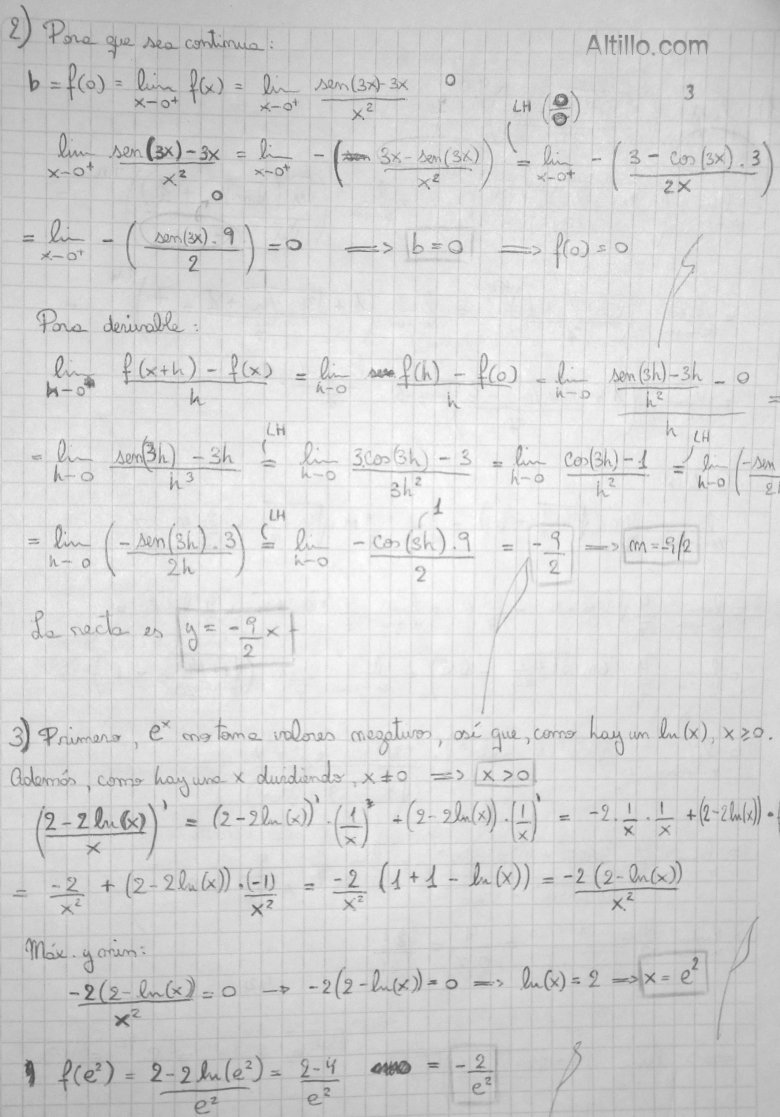 2) Para que sea continua:
Altillo.com
b = f(0) = lim x→0⁺ f(x) = lim x→0⁺ (sen(3x) - 3x)/x² 0
3
lim x→0⁺ (sen(3x) - 3x)/x² = lim x→0⁺ -((3x - sen(3x))/x²) = LH (0/0) lim x→0⁺ -((3 - cos(3x) . 3)/2x)
= lim x→0⁺ -((sen(3x) . 9)/2) = 0 ⟹ b = 0 ⟹ f(0) = 0
0
Para derivable:
lim h→0 (f(x+h) - f(x))/h = lim h→0 (f(h) - f(0))/h = lim h→0 ((sen(3h) - 3h)/h² - 0)/h =
= lim h→0 (sen(3h) - 3h)/h³ = LH lim h→0 (3cos(3h) - 3)/3h² = lim h→0 (cos(3h) - 1)/h² = LH lim h→0 (-sen/2h
= lim h→0 ((-sen(3h) . 3)/2h) = LH lim h→0 (-cos(3h) . 9)/2 = -9/2 ⟹ m = -9/2
1
La recta es y = -9/2 x
3) Primero, eˣ no toma valores negativos, así que, como hay un ln(x), x ≥ 0.
Además, como hay una x dividiendo, x ≠ 0 ⟹ x > 0
((2 - 2ln(x))/x)' = (2 - 2ln(x))' . (1/x) + (2 - 2ln(x)) . (1/x)' = -2 . 1/x . 1/x + (2 - 2ln(x)) .
= -2/x² + (2 - 2ln(x)) . (-1)/x² = -2/x² (1 + 1 - ln(x)) = -2(2 - ln(x))/x²
Máx. y min:
-2(2 - ln(x))/x² = 0 → -2(2 - ln(x)) = 0 ⟹ ln(x) = 2 ⟹ x = e²
f(e²) = (2 - 2ln(e²))/e² = (2 - 4)/e² = -2/e²